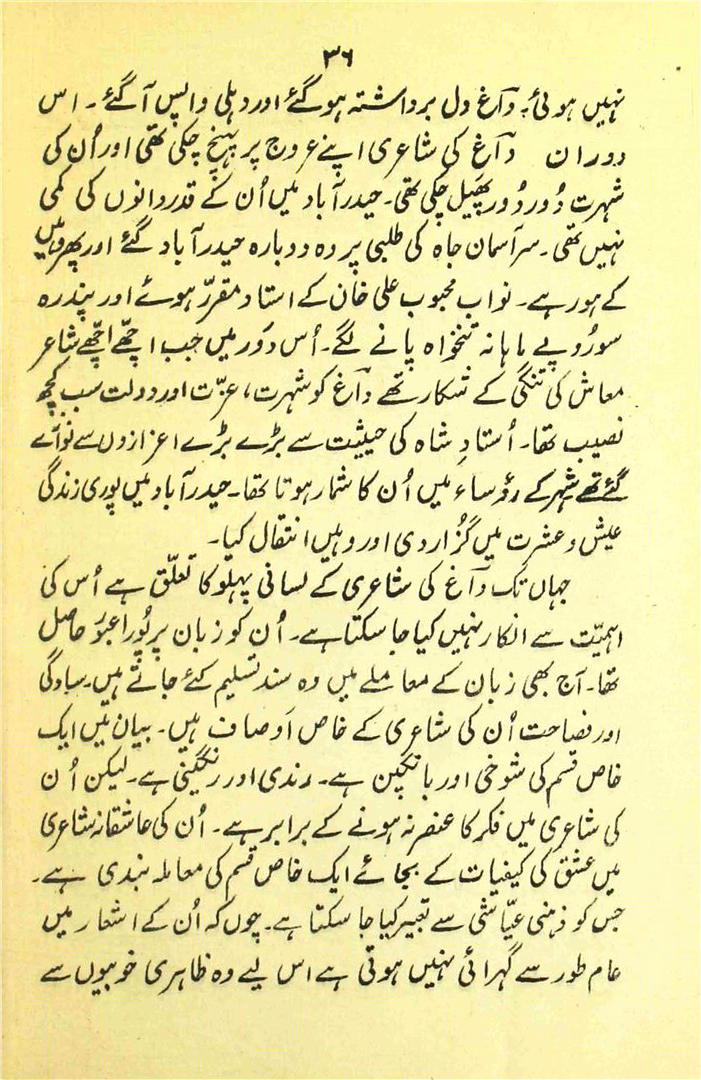 ۳۶
نہیں ہوئی۔ داغؔ دل برداشتہ ہوگئے اور دہلی واپس آگئے۔ اس
دوران داغؔ کی شاعری اپنے عروج پر پہنچ چکی تھی اور اُن کی
شہرت دُور دُور پھیل چکی تھی۔ حیدرآباد میں اُن کے قدردانوں کی کمی
نہیں تھی۔ سر آسمان جاہ کی طلبی پر وہ دوبارہ حیدرآباد گئے اور پھر وہیں
کے ہو رہے۔ نواب محبوب علی خان کے استاد مقرّر ہوئے اور پندرہ
سو رُوپے ماہانہ تنخواہ پانے لگے۔ اُس دَور میں جب اچھّے اچھّے شاعر
معاش کی تنگی کے شکار تھے داغؔ کو شہرت، عزّت اور دولت سب کچھ
نصیب تھا۔ اُستادِ شاہ کی حیثیت سے بڑے بڑے اعزازوں سے نوازے
گئے تھے شہر کے رؤساء میں اُن کا شمار ہوتا تھا۔ حیدرآباد میں پوری زندگی
عیش و عشرت میں گزُار دی اور وہیں انتقال کیا۔
جہاں تک داغؔ کی شاعری کے لسانی پہلو کا تعلّق ہے اُس کی
اہمیّت سے انکار نہیں کیا جا سکتا ہے۔ اُن کو زبان پر پُورا عبوُر حاصل
تھا۔ آج بھی زبان کے معاملے میں وہ سند تسلیم کئے جاتے ہیں۔ سادگی
اور فصاحت اُن کی شاعری کے خاص اَوصاف ہیں۔ بیان میں ایک
خاص قسم کی شوخی اور بانکپن ہے۔ رندی اور رنگینی ہے۔ لیکن اُن
کی شاعری میں فکر کا عنصر نہ ہونے کے برابر ہے۔ اُن کی عاشقانہ شاعری
میں عشق کی کیفیات کے بجائے ایک خاص قسم کی معاملہ بندی ہے۔
جس کو ذہنی عیّاشی سے تعبیر کیا جا سکتا ہے۔ چوں کہ اُن کے اشعار میں
عام طور سے گہرائی نہیں ہوتی ہے اس لیے وہ ظاہری خوبیوں سے